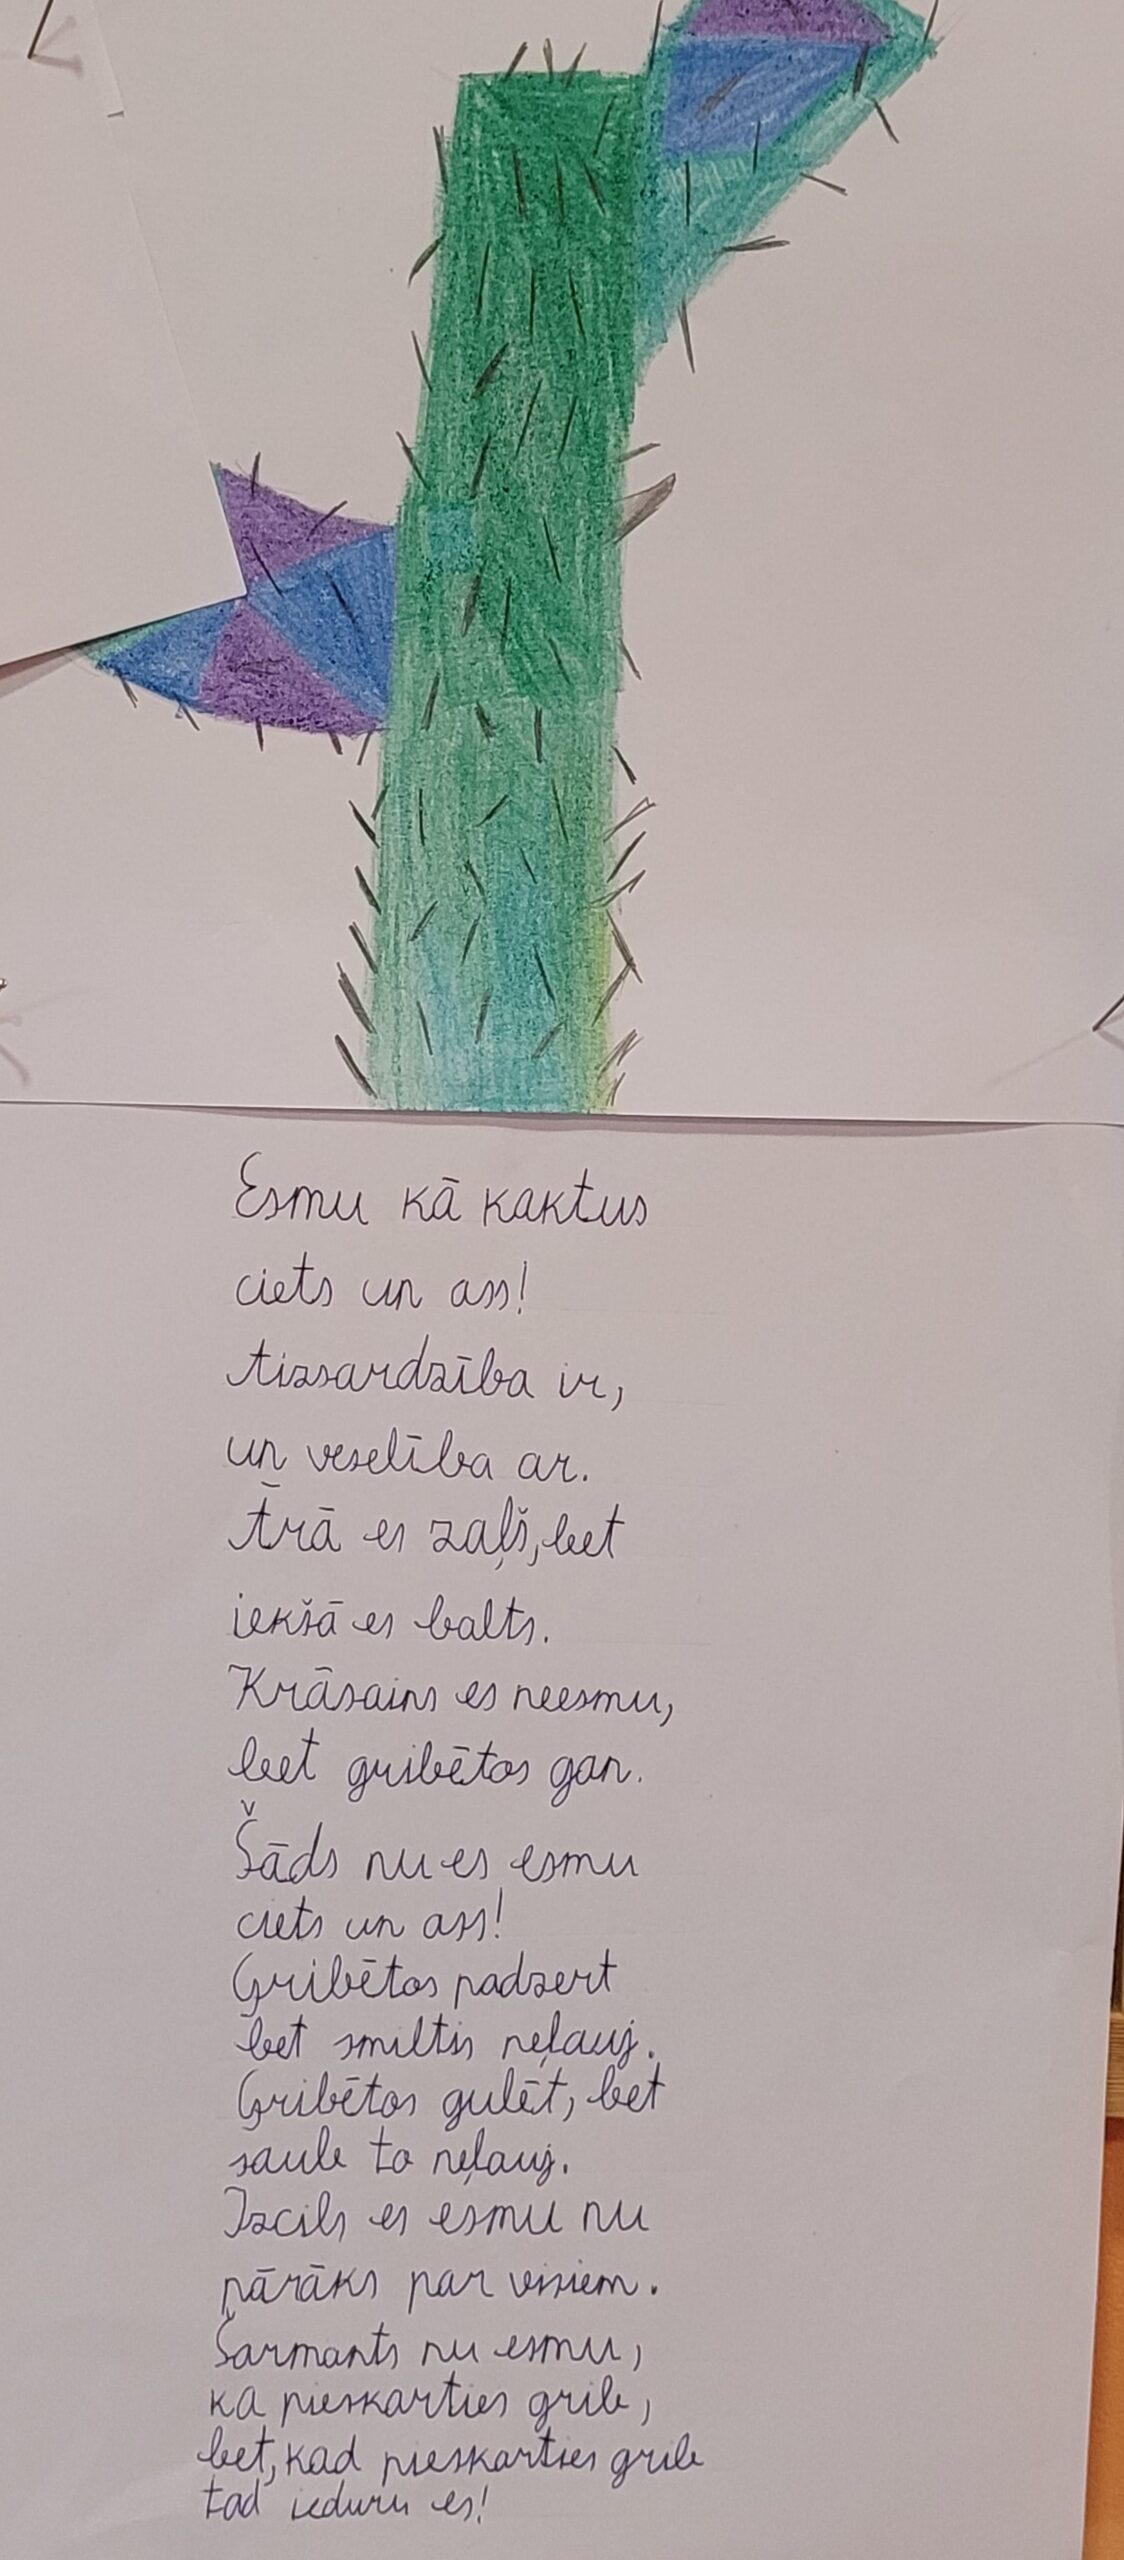 Esmu kā kaktus
ciets un ass!
Aizsardzība ir,
un veselība ar.
Ārā es zaļš, bet
iekšā es balts.
Krāsains es neesmu,
bet gribētos gan.
Šāds nu es esmu
ciets un ass!
Gribētos padzert
bet smiltis neļauj.
Gribētos gulēt, bet
saule to neļauj.
Izcils es esmu nu
pārāks par visiem.
Šarmants nu esmu,
ka pieskarties grib,
bet, kad pieskarties grib
tad ieduru es!